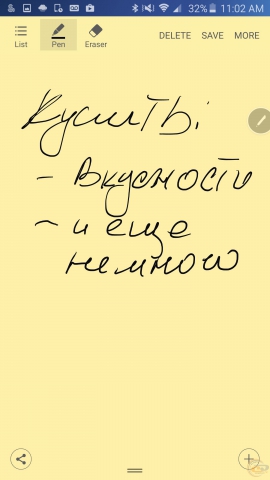 32% 11:02 AM
List Pen Eraser DELETE SAVE MORE
Купить:
- Вкусности
- и еще
немного